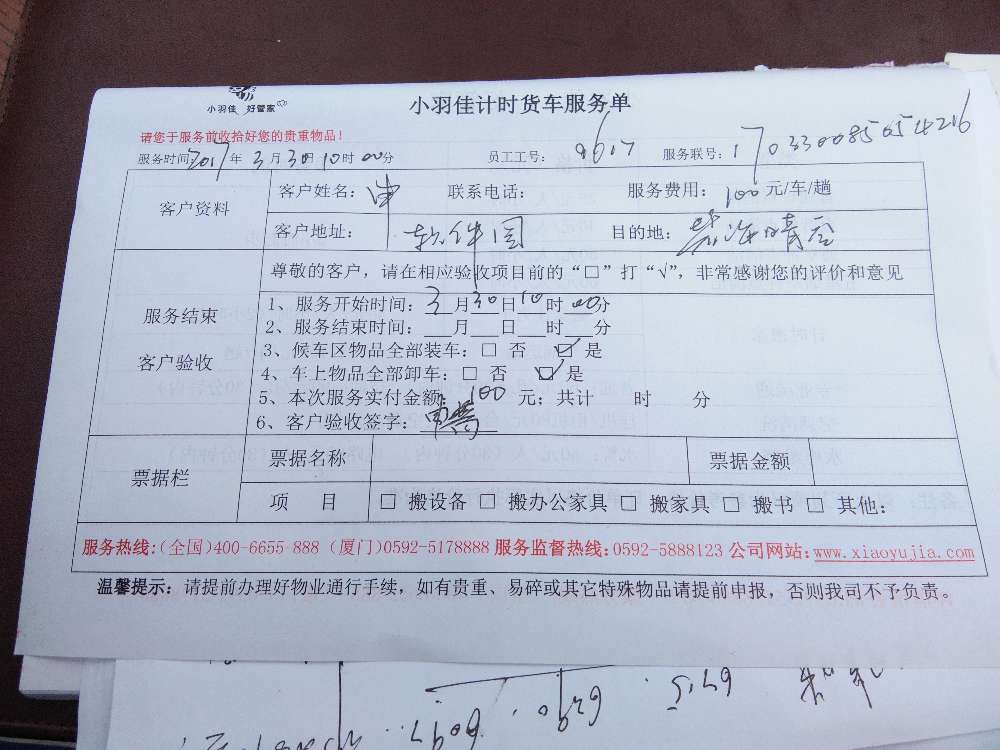 小羽佳 好管家
小羽佳计时货车服务单
请您于服务前收拾好您的贵重物品!
服务时间:2017年3月30日10时00分 员工工号: 9617 服务联号: 170330085054216
客户资料 客户姓名: 联系电话: 服务费用: 100元/车/趟
客户地址: 软件园 目的地: 碧海晴空
尊敬的客户,请在相应验收项目前的“□”打“√”,非常感谢您的评价和意见
服务结束
客户验收
1、服务开始时间: 3月30日10时00分
2、服务结束时间:___月___日___时___分
3、候车区物品全部装车: □ 否 ☑ 是
4、车上物品全部卸车: □ 否 ☑ 是
5、本次服务实付金额: 100 元; 共计 时 分
6、客户验收签字:
票据栏 票据名称 票据金额
项 目 □ 搬设备 □ 搬办公家具 □ 搬家具 □ 搬书 □ 其他:
服务热线:(全国)400-6655-888 (厦门)0592-5178888 服务监督热线:0592-5888123 公司网站:www.xiaoyujia.com
温馨提示: 请提前办理好物业通行手续,如有贵重、易碎或其它特殊物品请提前申报,否则我司不予负责。